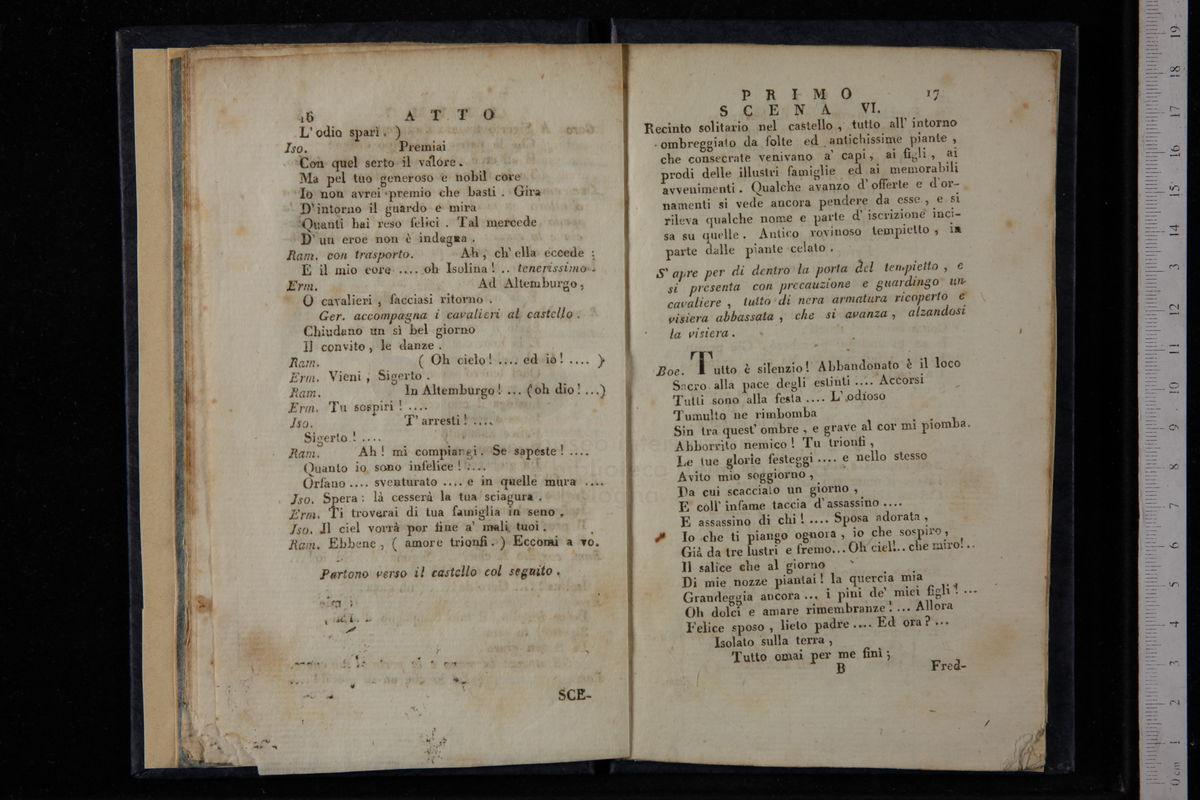 16 ATTO
L' odio sparì. )
Iso. Premiai
Con quel serto il valore.
Ma pel tuo generoso e nobil core
Io non avrei premio che basti. Gira
D'intorno il guardo e mira
Quanti hai reso felici. Tal mercede
D' un eroe non è indegna.
Ram. con trasporto. Ah, ch' ella eccede :
E il mio core .... oh Isolina! .. tenerissimo.
Erm. Ad Altemburgo,
O cavalieri, facciasi ritorno.
Ger. accompagna i cavalieri al castello.
Chiudano un sì bel giorno
Il convito, le danze.
Ram. ( Oh cielo! .... ed io! .... )
Erm. Vieni, Sigerto.
Ram. In Altemburgo! ... (oh dio! ...)
Erm. Tu sospiri! ....
Iso. T' arresti! ....
Sigerto! ....
Ram. Ah! mi compiangi. Se sapeste! ....
Quanto io sono infelice! ....
Orfano .... sventurato .... e in quelle mura ....
Iso. Spera: là cesserà la tua sciagura.
Erm. Ti troverai di tua famiglia in seno.
Iso. Il ciel vorrà por fine a' mali tuoi.
Ram. Ebbene, ( amore trionfi. ) Eccomi a vo.
Partono verso il castello col seguito.
SCE-
PRIMO 17
SCENA VI.
Recinto solitario nel castello, tutto all' intorno
ombreggiato da folte ed antichissime piante,
che consecrate venivano a' capi, ai figli, ai
prodi delle illustri famiglie ed ai memorabili
avvenimenti. Qualche avanzo d' offerte e d'or-
namenti si vede ancora pendere da esse, e si
rileva qualche nome e parte d' iscrizione inci-
sa su quelle. Antico rovinoso tempietto, in
parte dalle piante celato.
S' apre per di dentro la porta del tempietto, e
si presenta con precauzione e guardingo un
cavaliere, tutto di nera armatura ricoperto e
visiera abbassata, che si avanza, alzandosi
la visiera.
Boe. Tutto è silenzio! Abbandonato è il loco
Sacro alla pace degli estinti .... Accorsi
Tutti sono alla festa .... L' odioso
Tumulto ne rimbomba
Sin tra quest' ombre, e grave al cor mi piomba.
Abborrito nemico! Tu trionfi,
Le tue glorie festeggi .... e nello stesso
Avito mio soggiorno,
Da cui scacciato un giorno,
E coll' infame taccia d'assassino ....
E assassino di chi! .... Sposa adorata,
Io che ti piango ognora, io che sospiro,
Già da tre lustri e fremo... Oh ciel!.. che miro!..
Il salice che al giorno
Di mie nozze piantai! la quercia mia
Grandeggia ancora ... i pini de' miei figli! ...
Oh dolci e amare rimembranze! ... Allora
Felice sposo, lieto padre .... Ed ora? ...
Isolato sulla terra,
Tutto omai per me finì;
B Fred-